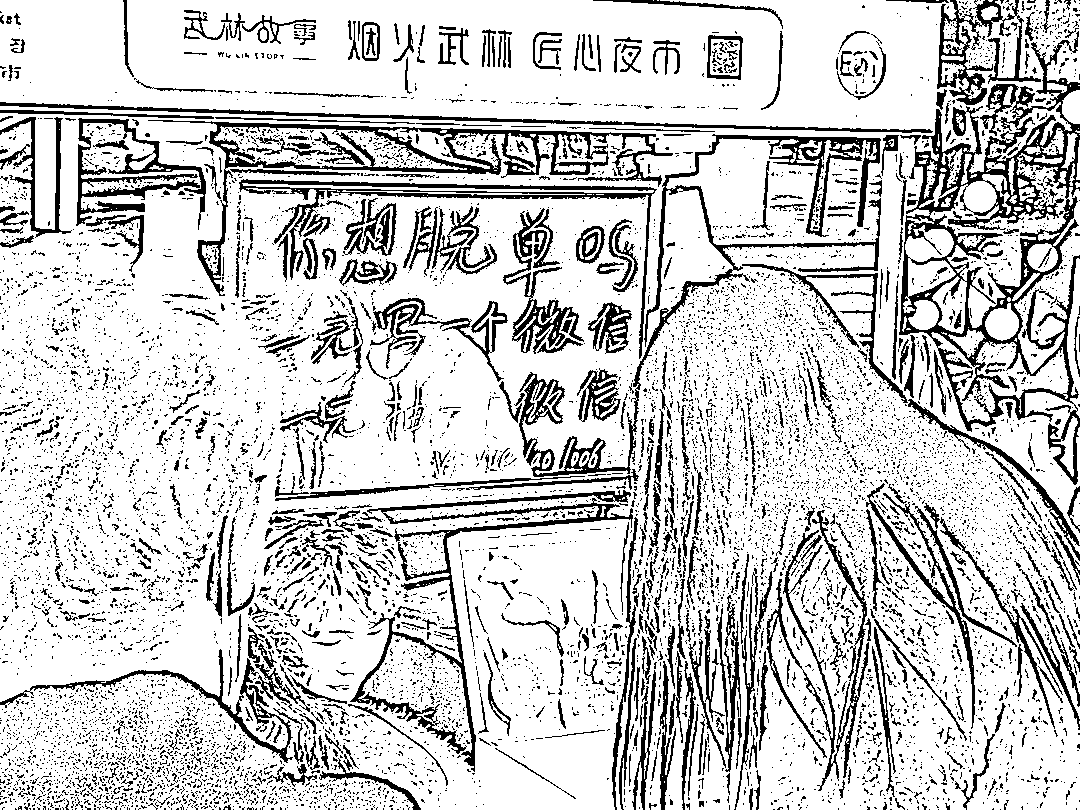 武林故事
WU LIN STORY
烟火武林 匠心夜市
你想脱单吗
一元写一个微信
一元抽一 微信